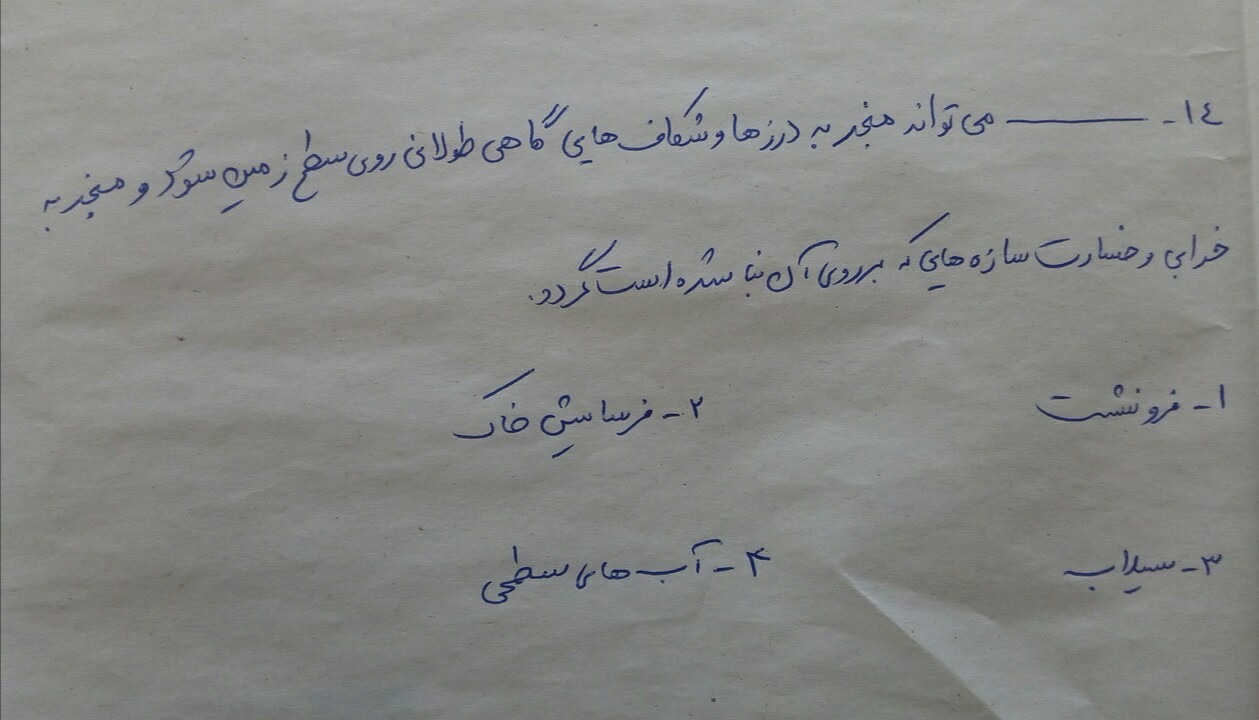 ۱۴- ـــــــــ می تواند منجر به درزها و شکاف هایی گاهی طولانی روی سطح زمین شود و منجر به
خرابی و خسارت سازه هایی که بر روی آن بنا شده است گردد.
۱- فرونشت ۲- فرسایش خاک
۳- سیلاب ۴- آب های سطحی